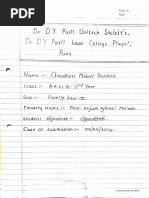 Dr. D Y Patil Unitech Society's,
Dr. D.Y Patil Law College Pimpri,
Pune
Name :- Chaudhari Mahavi Santosh
Class :- B.A.LL.B - 3rd Year
Sub :- Family Law - II
Faculty Name :- Prof.
Student Signature :-
Date of Submission :-